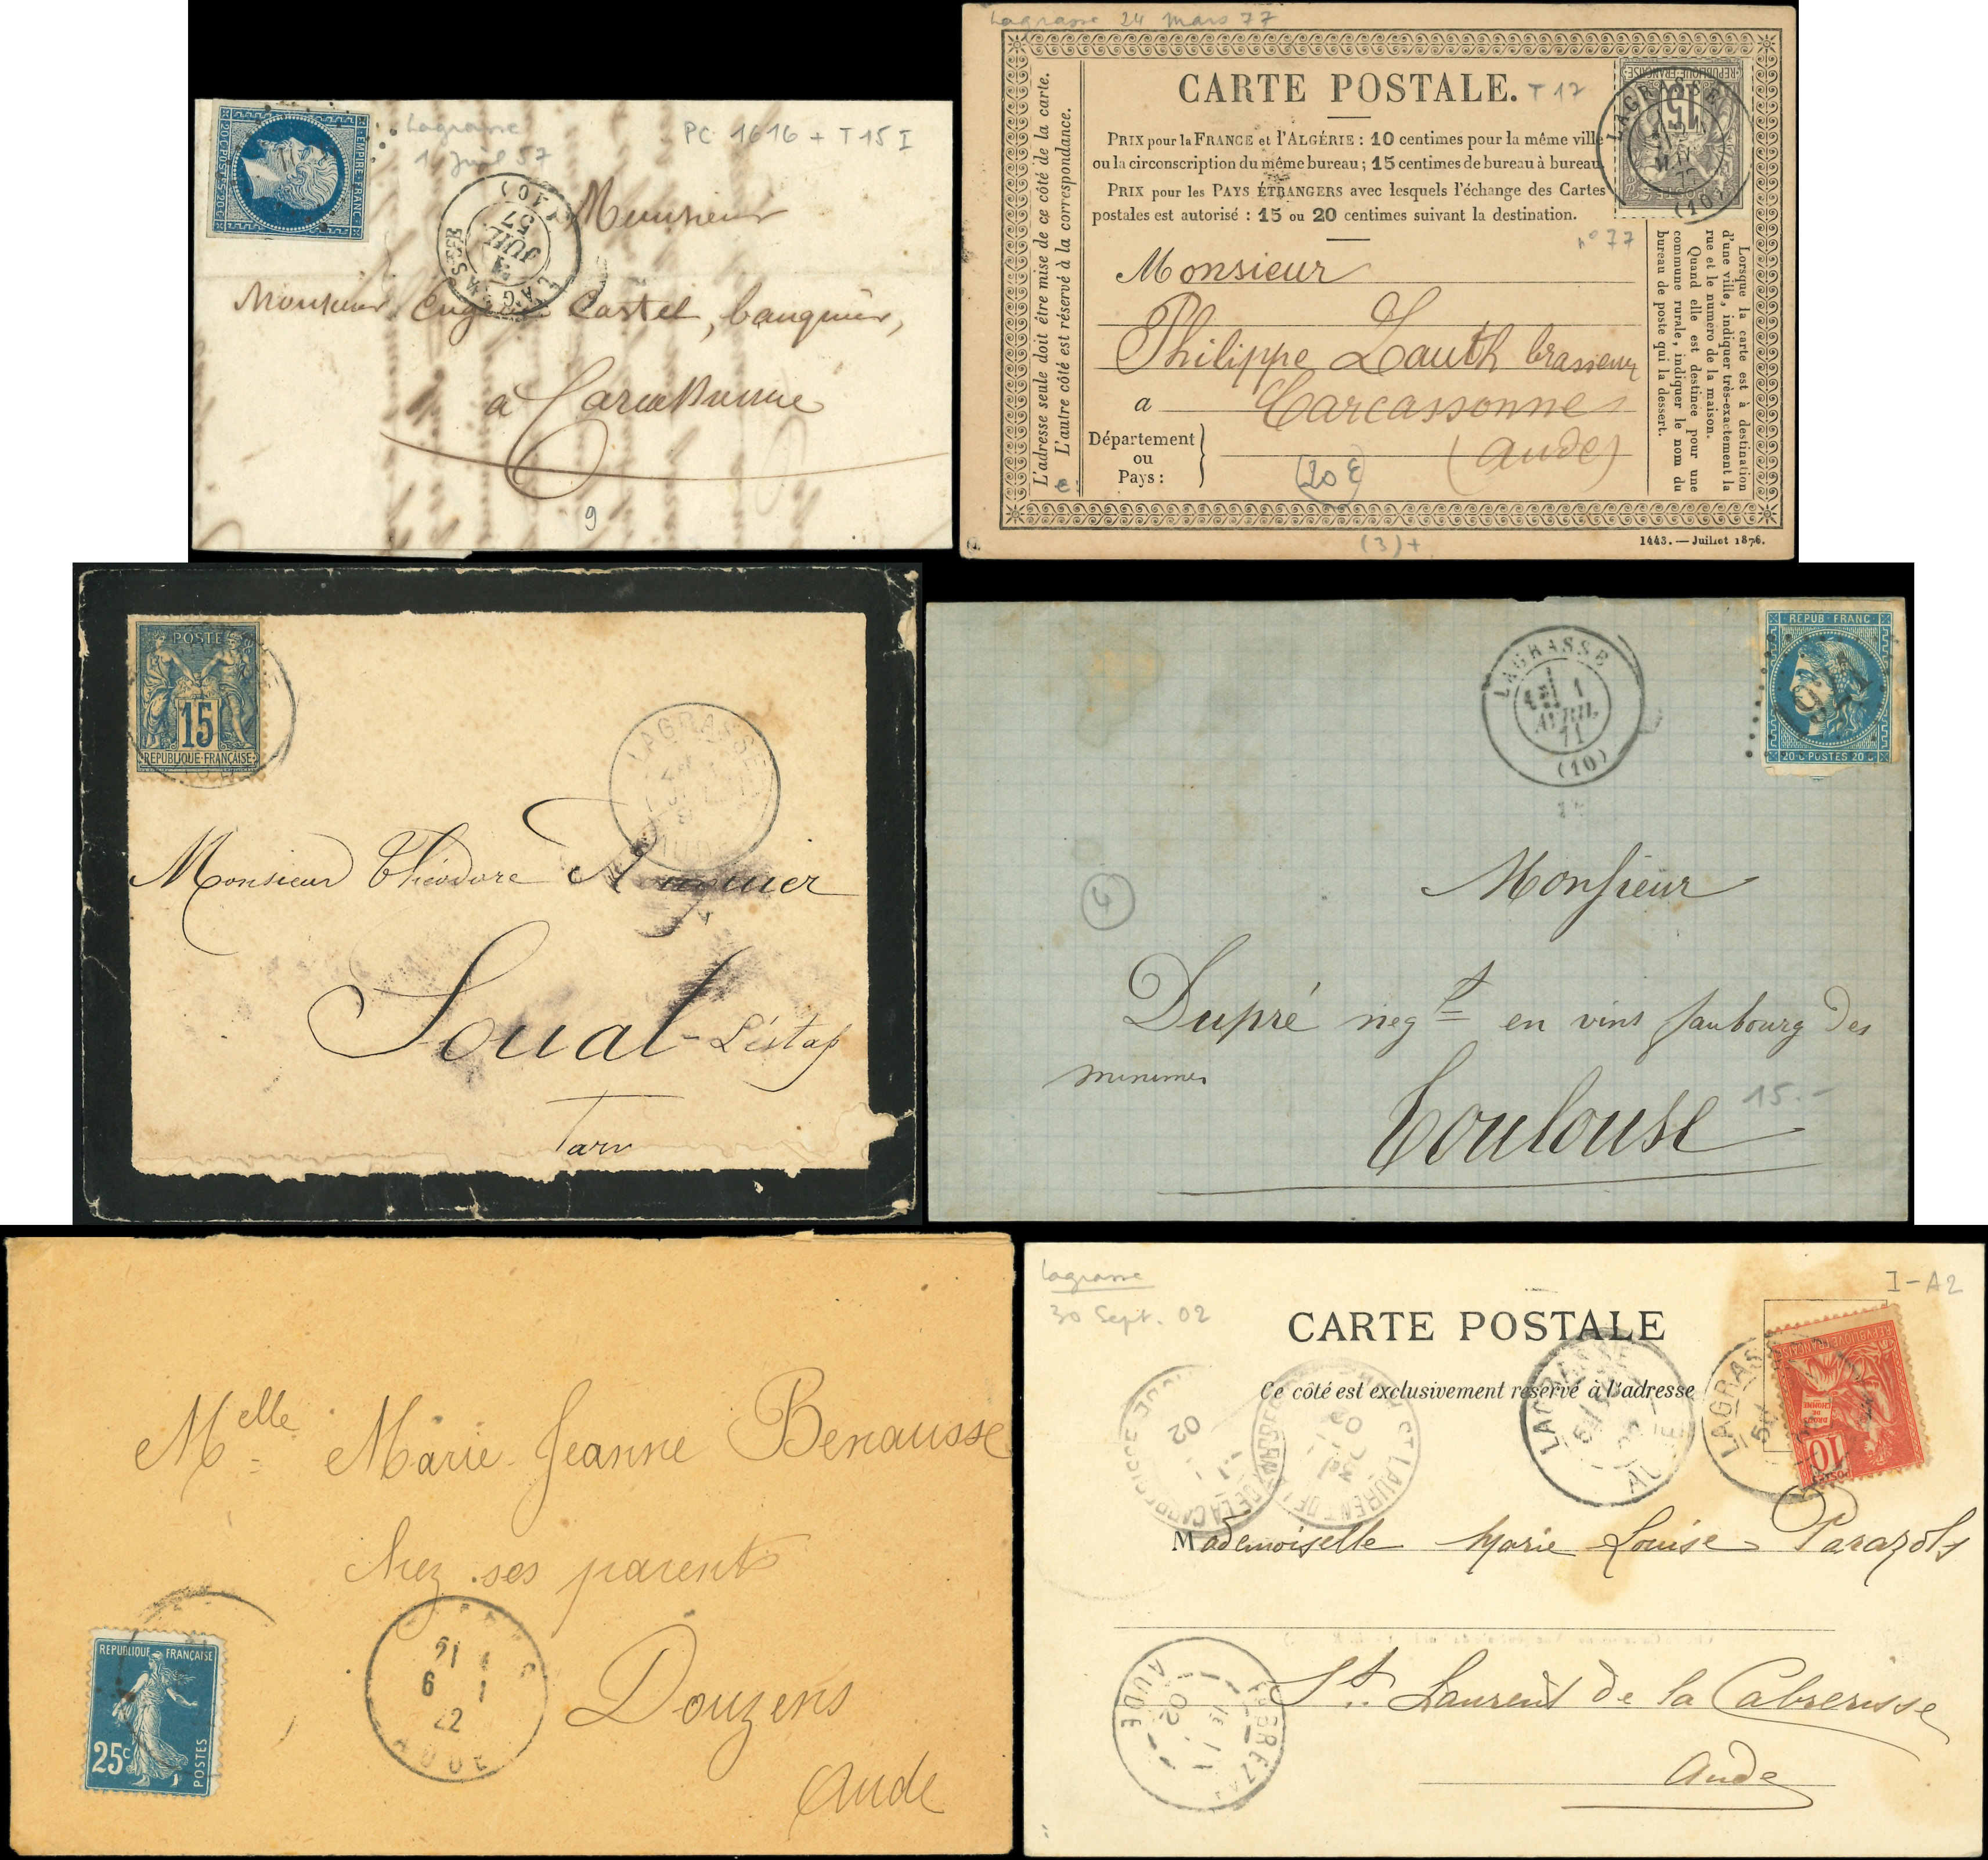 EMPIRE · FRANC
20·C·POSTES·20·C·
Lagrasse
1 Juil 57
PC 1616 + T15 I
LAGRASSE
1
JUIL
57
(10)
Monsieur
Monsieur Eugène Castel, banquier,
à Carcassonne
9
Lagrasse 24 Mars 77
CARTE POSTALE.
T 17
PRIX pour la FRANCE et l'ALGÉRIE : 10 centimes pour la même ville
ou la circonscription du même bureau ; 15 centimes de bureau à bureau.
PRIX pour les PAYS ÉTRANGERS avec lesquels l'échange des Cartes
postales est autorisé : 15 ou 20 centimes suivant la destination.
n° 77
L'adresse seule doit être mise de ce côté de la carte.
L'autre côté est réservé à la correspondance.
REPUBLIQUE FRANÇAISE
15
LAGRASSE
(10)
Lorsque la carte est à destination
d'une ville, indiquer très-exactement la
rue et le numéro de la maison.
Quand elle est destinée pour une
commune rurale, indiquer le nom du
bureau de poste qui la dessert.
Monsieur
Philippe Lauth brasseur
a Carcassonne
Département
ou
Pays :
(Aude)
20 €
(3)+
1443. — Juillet 1876.
POSTE
15
REPUBLIQUE FRANÇAISE
LAGRASSE
Monsieur Théodore
Soual - L'estap
Tarn
LAGRASSE
1
AVRIL
71
(10)
REPUB · FRANC
20 · C POSTES 20 C
Monsieur
4
Dupré negt en vins faubourg des
minimes
15.-
Toulouse
Melle Marie Jeanne Benausse
chez ses parents
21
6 1
22
AUDE
Douzens
Aude
REPUBLIQUE FRANÇAISE
25c
POSTES
Lagrasse
30 Sept. 02
I-A2
CARTE POSTALE
Ce côté est exclusivement réservé à l'adresse
LAGRASSE
AUDE
LAGRASSE
REPUBLIQUE FRANÇAISE
DROITS
DE
L'HOMME
10
POSTES
ST LAURENT DE LA CABRERISSE
02
Mademoiselle Marie Louise Parazols
St. Laurent de la Cabrerisse
Aude
FABREZAN
02
AUDE